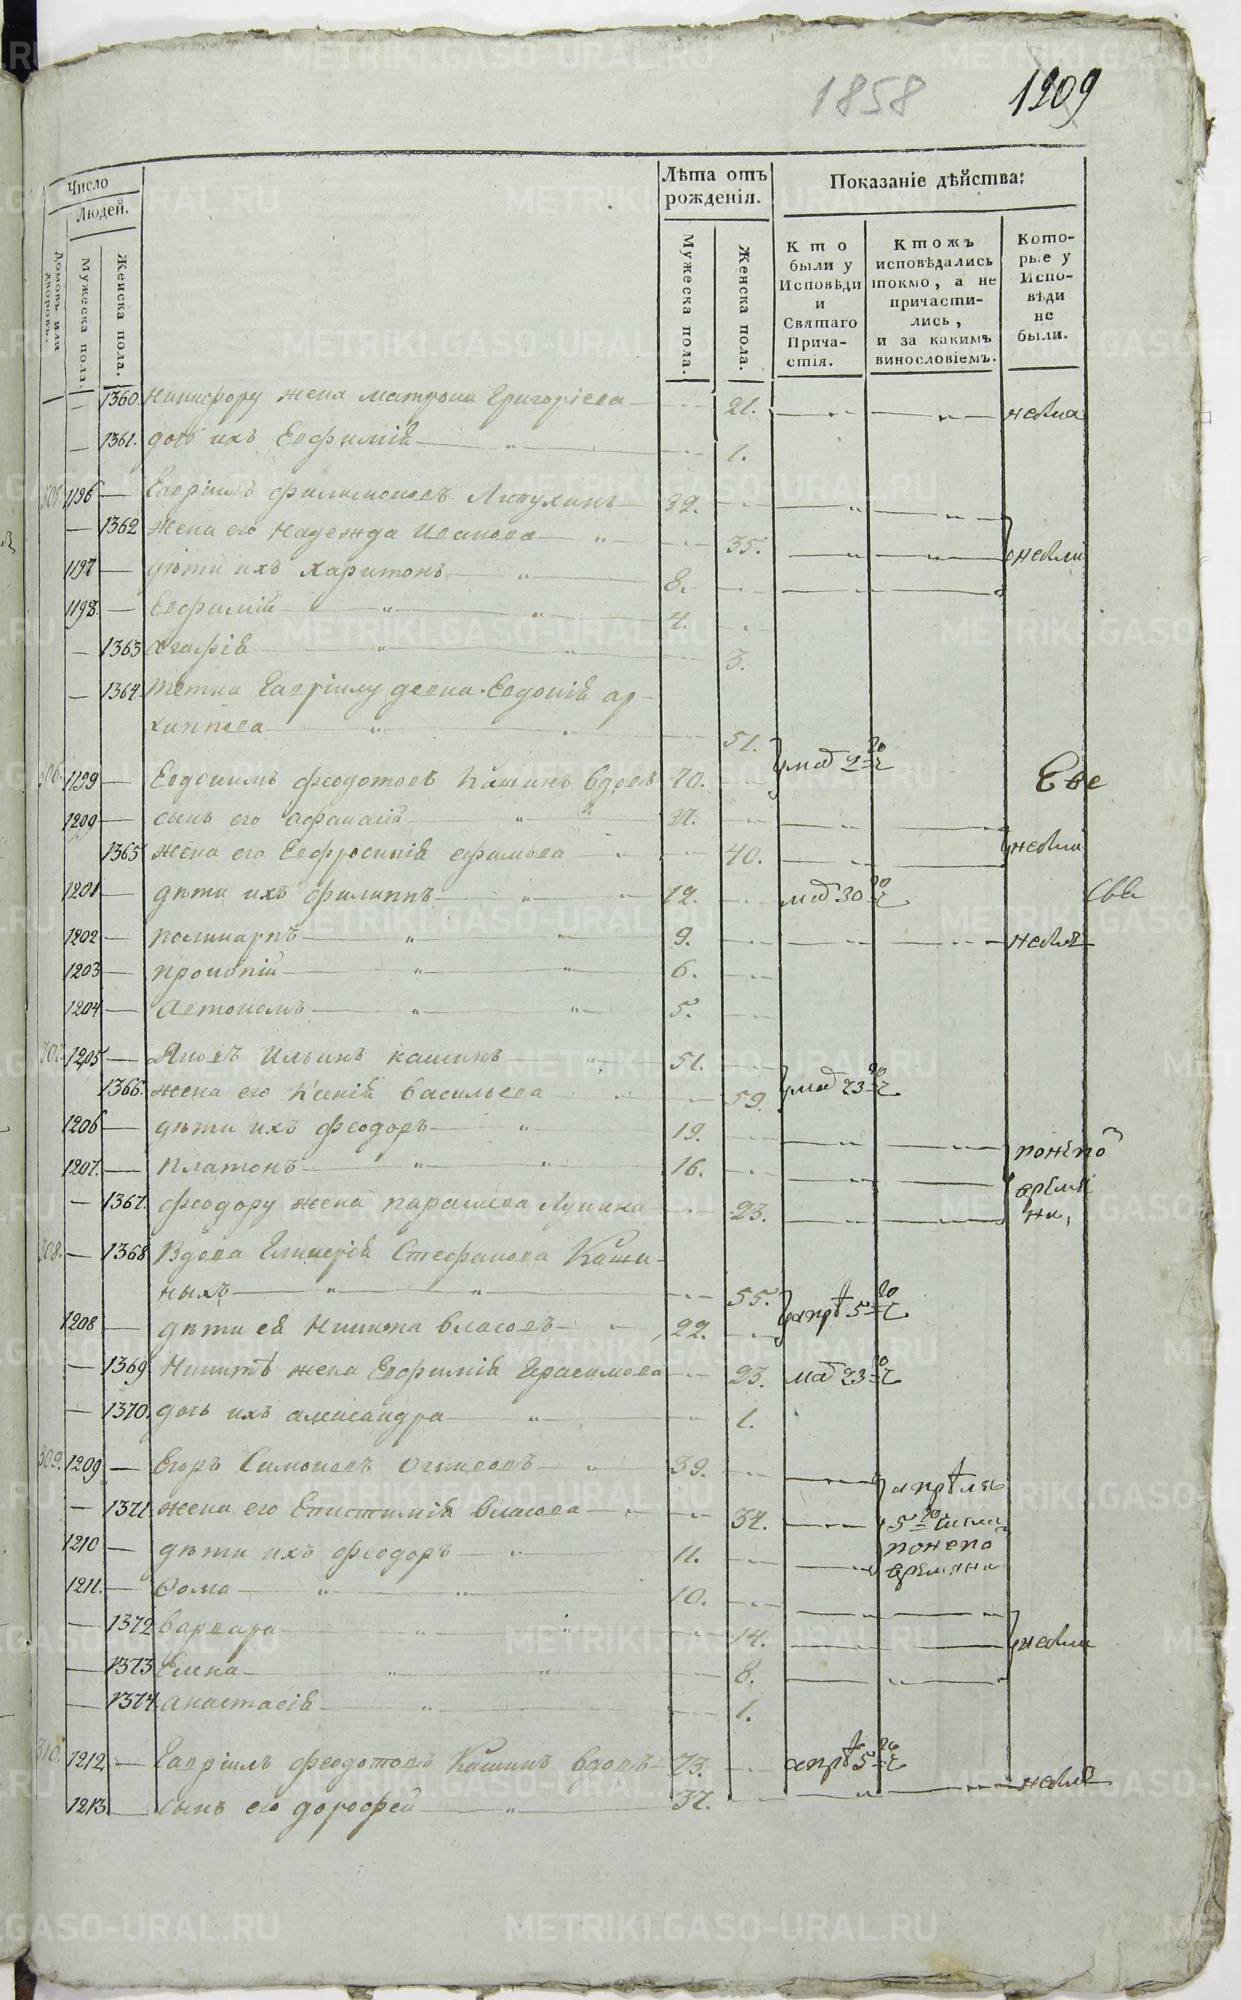 1858
1209
Число
Людей.
Домовъ или дворовъ.
Мужеска пола.
Женска пола.
Лѣта отъ рожденія.
Мужеска пола.
Женска пола.
Показаніе дѣйства:
Кто были у Исповѣди и Святаго Причастія.
Ктожъ исповѣдались токмо, а не причастились, и за какимъ винословіемъ.
Которые у Исповѣди не были.
1360 Никифору жена Матрона Григоріева 21.
1361. дочь ихъ Евфимія 1.
1196 Гавріилъ Филимоновъ Лапухинъ 32.
1362 жена его Надежда Иванова 35.
1197 дѣти ихъ Харитонъ 8.
1198. Евфимій 4.
1363 Агафія 3.
1364 тетка Гавріилу девка Евдокія Ар-
хиппова 51.
306. 1199 Евдокимъ Феодотовъ Кашинъ вдовъ 70. маѣ 2=го
1200 сынъ его Афанасій 37.
1365 жена его Евфросинія Ефимова 40.
1201 дѣти ихъ Филиппъ 12. маѣ 30=го
1202 Поликарпъ 9.
1203 Прокопій 6.
1204 Автономъ 5.
307. 1205 Яковъ Ильинъ Кашинъ 51.
1366. жена его Ксенія Васильева 59. маѣ 23=го
1206 дѣти ихъ Феодоръ 19.
1207. Платонъ 16.
1367. Феодору жена Параскева Лукина 23.
308. 1368 Вдова Гликерія Стефанова Каши-
ныхъ 55. апрѣ 5=го
1208 дѣти ея Никита Власовъ 22.
1369 Никитѣ жена Евфимія Герасимова 23. маѣ 23=го
1370. дочь ихъ Александра 1.
309. 1209 Егоръ Симоновъ 39. апрѣля
1371 жена его Епистимія Власова 34. 5=го числа
1210 дѣти ихъ Феодоръ 11.
1211. Фома 10.
1372 Варвара 14.
1373 Елена 8.
1374 Анастасія 1.
310. 1212 Гавріилъ Феодотовъ Кашинъ вдовъ 73. апрѣ 5=го
1213 сынъ его Дорофей 37.
METRIKI.GASO-URAL.RU